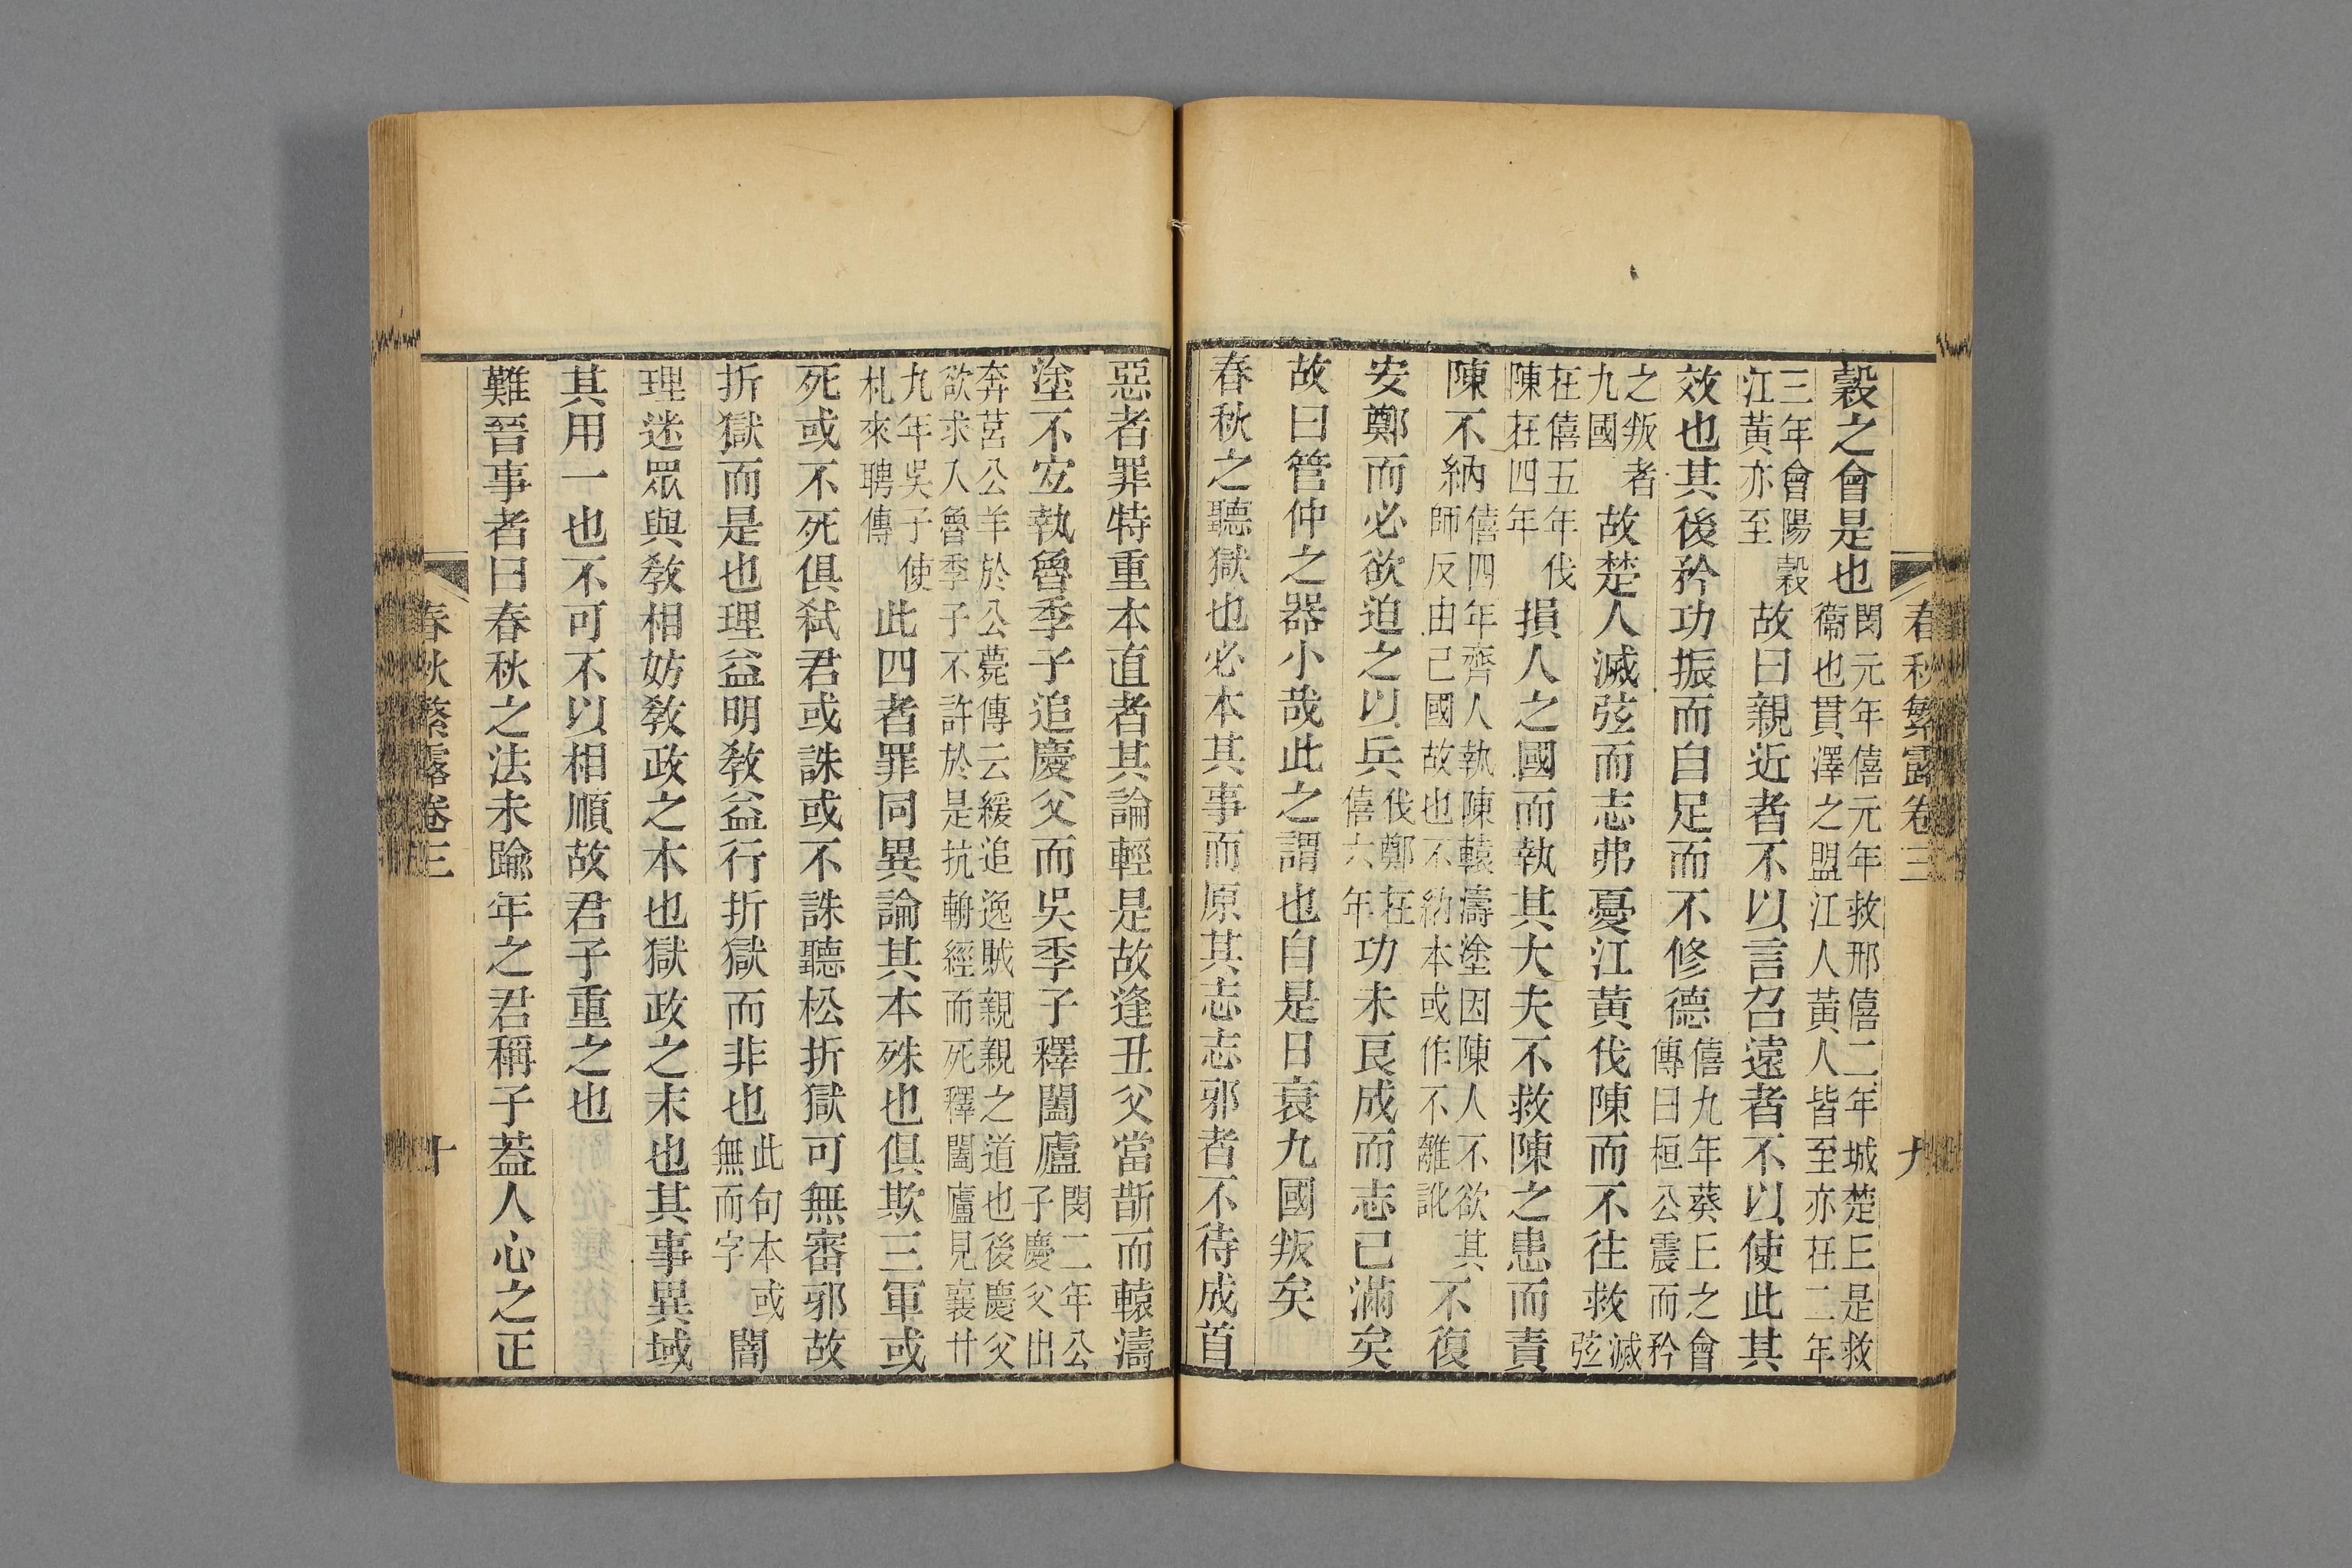 春秋繁露卷三 九
穀之會是也閔元年僖元年救邢僖二年城楚王是救衞也貫澤之盟江人黃人皆至亦在二年
三年會陽穀江黃亦至故曰親近者不以言召遠者不以使此其
效也其後矜功振而自足而不修德僖九年葵丘之會傳曰桓公震而矜
之叛者九國故楚人滅弦而志弗憂江黃伐陳而不往救滅弦
在僖五年伐陳在四年損人之國而執其大夫不救陳之患而責
陳不納僖四年齊人執陳轅濤塗因陳人不欲其師反由己國故也不納本或作不離訛不復
安鄭而必欲迫之以兵伐鄭在僖六年功未良成而志已滿矣
故曰管仲之器小哉此之謂也自是日衰九國叛矣
春秋之聽獄也必本其事而原其志志邪者不待成首
惡者罪特重本直者其論輕是故逢丑父當斮而轅濤
塗不宜執魯季子追慶父而吳季子釋闔廬閔二年公子慶父出
奔莒公羊於公薨傳云緩追逸賊親親之道也後慶父欲求入魯季子不許於是抗輈經而死釋闔廬見襄廿
九年吳子使札來聘傳此四者罪同異論其本殊也俱欺三軍或
死或不死俱弒君或誅或不誅聽松折獄可無審邪故
折獄而是也理益明教益行折獄而非也此句本或無而字闇
理迷眾與教相妨教政之本也獄政之末也其事異域
其用一也不可不以相順故君子重之也
難晉事者曰春秋之法未踰年之君稱子蓋人心之正
春秋繁露卷三 十